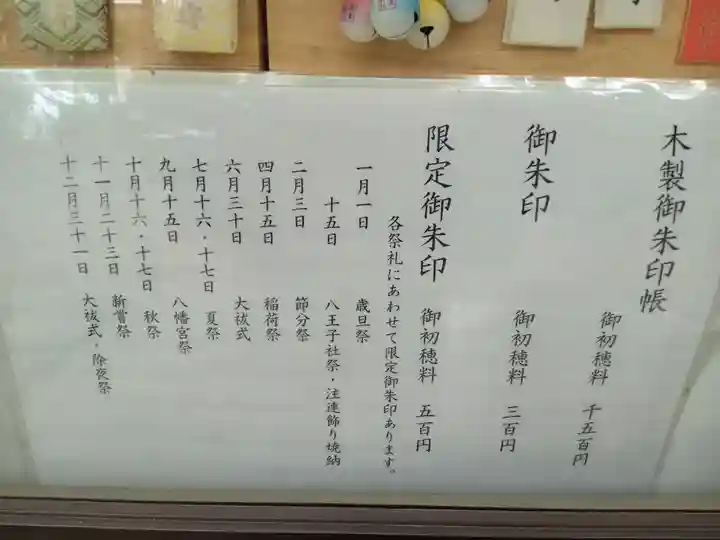 木製御朱印帳
御初穂料 千五百円
御朱印
御初穂料 三百円
限定御朱印 御初穂料 五百円
各祭礼にあわせて限定御朱印あります。
一月一日 歳旦祭
十五日 八王子社祭・注連飾り焼納
二月三日 節分祭
四月十五日 稲荷祭
六月三十日 大祓式
七月十六・十七日 夏祭
九月十五日 八幡宮祭
十月十六・十七日 秋祭
十一月二十三日 新嘗祭
十二月三十一日 大祓式・除夜祭